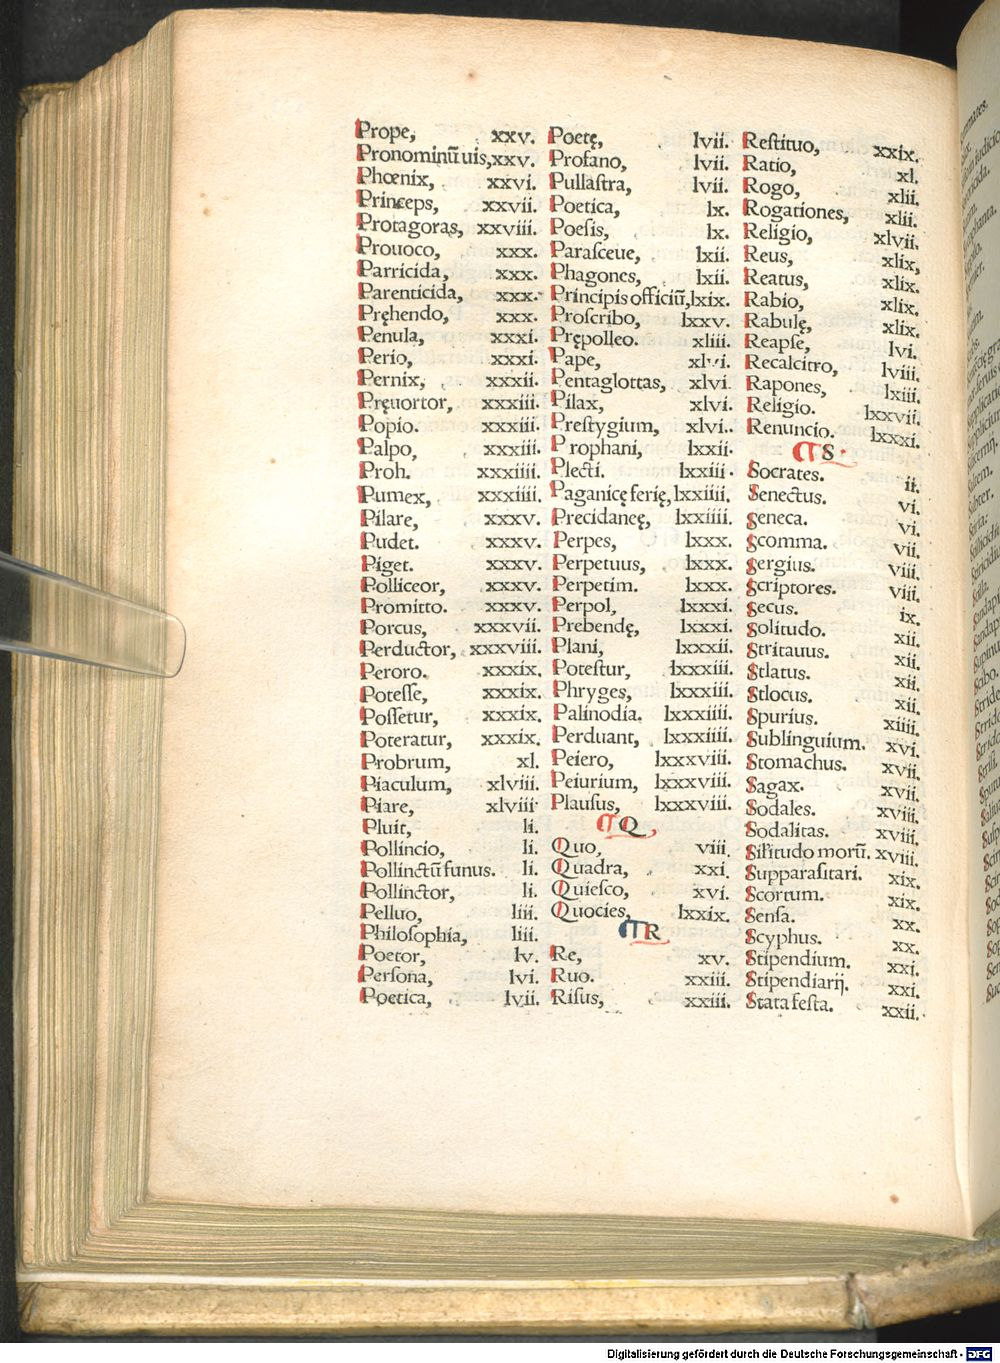 Prope, xxv.
Pronominū uis, xxv.
Phœnix, xxvi.
Princeps, xxvii.
Protagoras, xxviii.
Prouoco, xxx.
Parricida, xxx.
Parenticida, xxx.
Pręhendo, xxx.
Penula, xxxi.
Perio, xxxi.
Pernix, xxxii.
Pręuortor, xxxiii.
Popio. xxxiii.
Palpo, xxxiii.
Proh. xxxiiii.
Pumex, xxxiiii.
Pilare, xxxv.
Pudet. xxxv.
Piget. xxxv.
Polliceor, xxxv.
Promitto. xxxv.
Porcus, xxxvii.
Perductor, xxxviii.
Peroro. xxxix.
Poteſſe, xxxix.
Poſſetur, xxxix.
Poteratur, xxxix.
Probrum, xl.
Piaculum, xlviii.
Piare, xlviii
Pluit, li.
Pollincio, li.
Pollinctū funus. li.
Pollinctor, li.
Pelluo, liii.
Philoſophia, liii.
Poetor, lv.
Perſona, lvi.
Poetica, lvii.
Poetę, lvii.
Profano, lvii.
Pullaſtra, lvii.
Poetica, lx.
Poeſis, lx.
Paraſceue, lxii.
Phagones, lxii.
Principis officiū, lxix.
Proſcribo, lxxv.
Prępolleo. xliii.
Pape, xlvi.
Pentaglottas, xlvi.
Pilax, xlvi.
Preſtygium, xlvi.
Prophani, lxxii.
Plecti. lxxiii.
Paganicę ferię, lxxiiii.
Precidaneę, lxxiiii.
Perpes, lxxx.
Perpetuus, lxxx.
Perpetim. lxxx.
Perpol, lxxxi.
Prebendę, lxxxi.
Plani, lxxxii.
Poteſtur, lxxxiii.
Phryges, lxxxiii.
Palinodia. lxxxiiii.
Perduant, lxxxiiii.
Peiero, lxxxviii.
Peiurium, lxxxviii.
Plauſus, lxxxviii.
¶ Q
Quo, viii.
Quadra, xxi.
Quieſco, xvi.
Quocies, lxxix.
¶ R
Re, xv.
Ruo. xxiii.
Riſus, xxiii.
Reſtituo, xxix.
Ratio, xl.
Rogo, xlii.
Rogationes, xlii.
Religio, xlvii.
Reus, xlix,
Reatus, xlix.
Rabio, xlix.
Rabulę, xlix.
Reapſe, lvi.
Recalcitro, lviii.
Rapones, lxiii.
Religio. lxxvii.
Renuncio. lxxxi.
¶ S
Socrates. ii.
Senectus. vi.
Seneca. vi.
Scomma. vii.
Sergius. viii.
Scriptores. viii.
Secus. ix.
Solitudo. xii.
Stritauus. xii.
Stlatus. xii.
Stlocus. xii.
Spurius. xiiii.
Sublinguium. xvi.
Stomachus. xvii.
Sagax. xvii.
Sodales. xviii.
Sodalitas. xviii.
Sil'itudo morū. xviii.
Supparaſitari. xix.
Scortum. xix.
Senſa. xx.
Scyphus. xx.
Stipendium. xxi.
Stipendiarij. xxi.
Stata feſta. xxii.
Digitalisierung gefördert durch die Deutsche Forschungsgemeinschaft - DFG